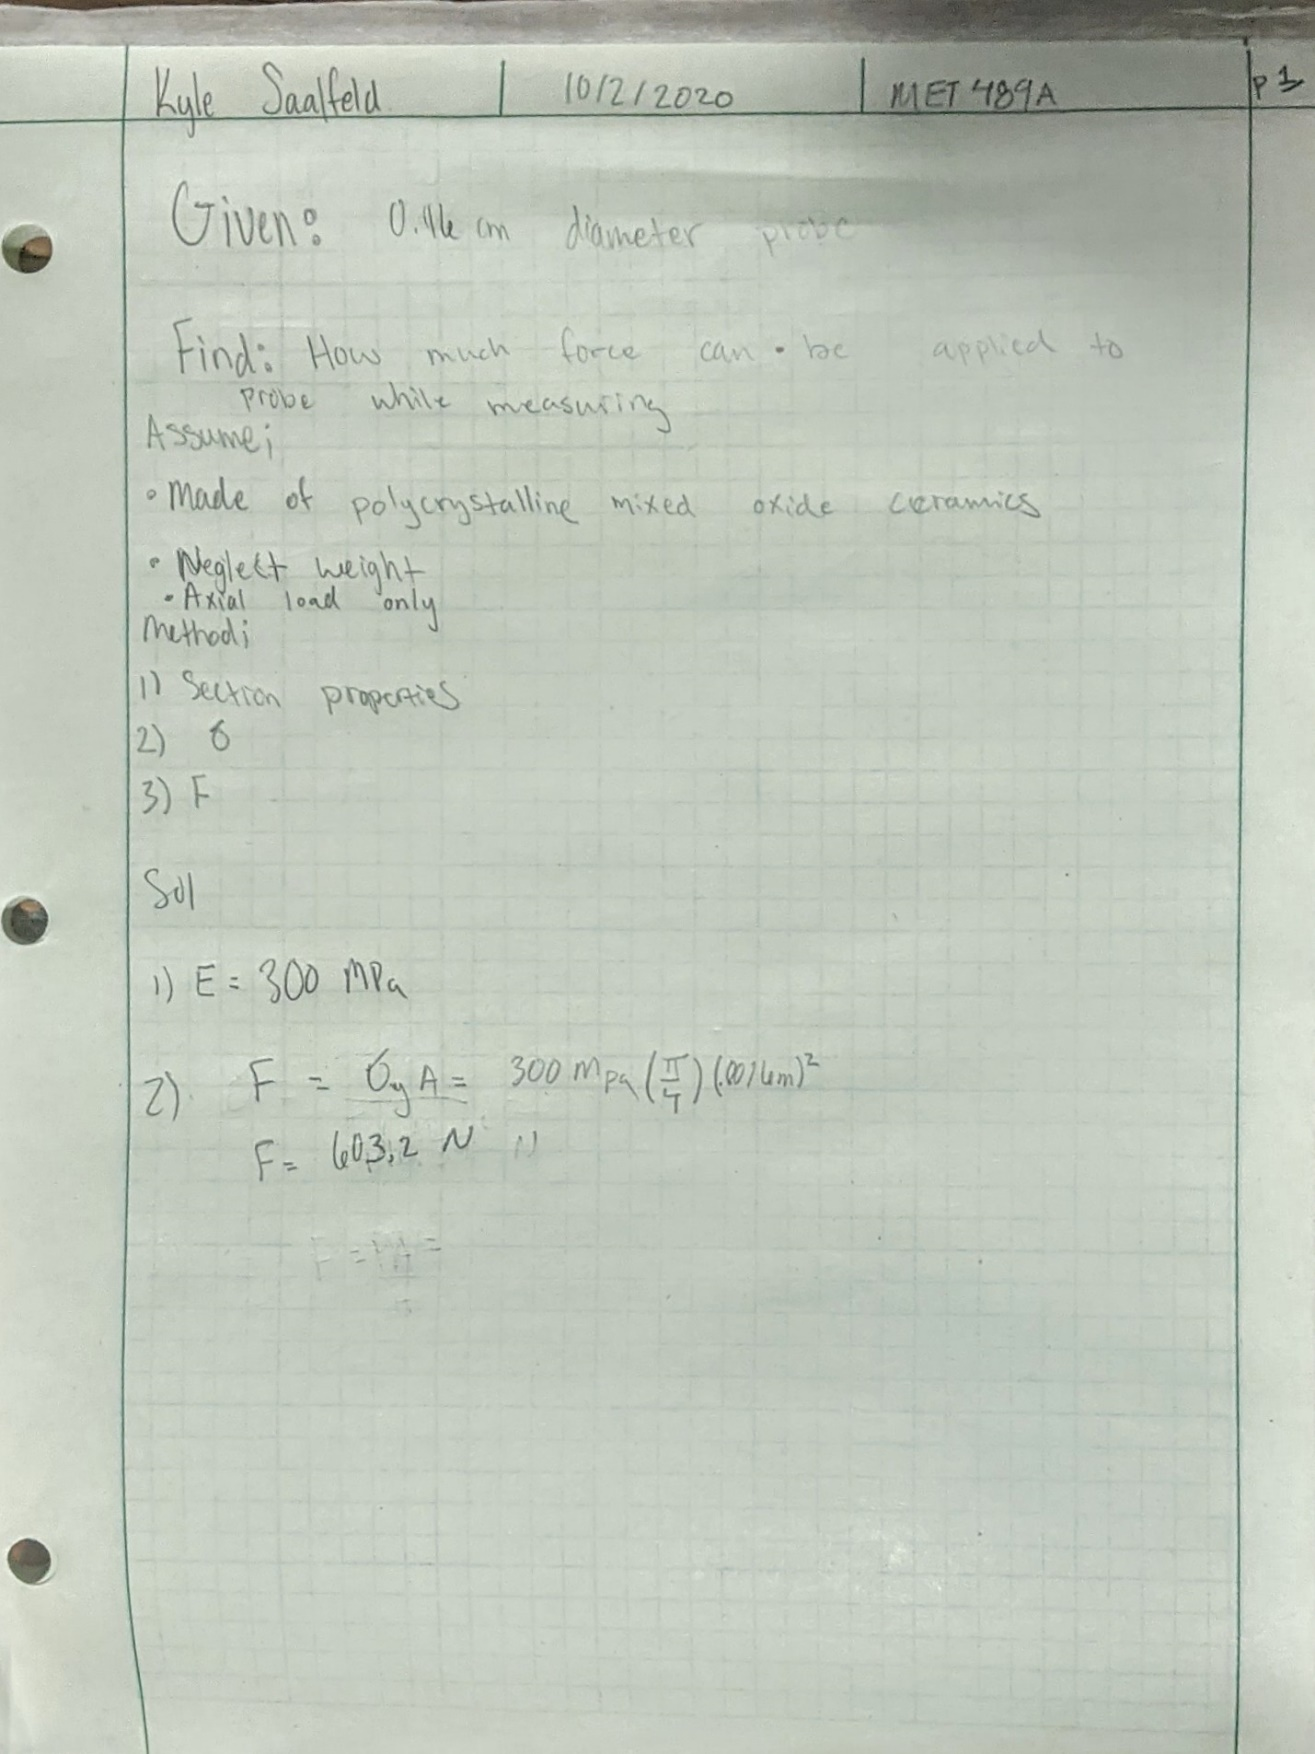 Kyle Saalfeld | 10/2/2020 | MET 489A p1
Given: 0.16 cm diameter probe
Find: How much force can be applied to
probe while measuring
Assume;
• Made of polycrystalline mixed oxide ceramics
• Neglect weight
• Axial load only
Method;
1) Section properties
2) σ
3) F
Sol
1) E = 300 MPa
2) F = σyA = 300 Mpa (π/4) (.0016m)²
F = 603.2 N